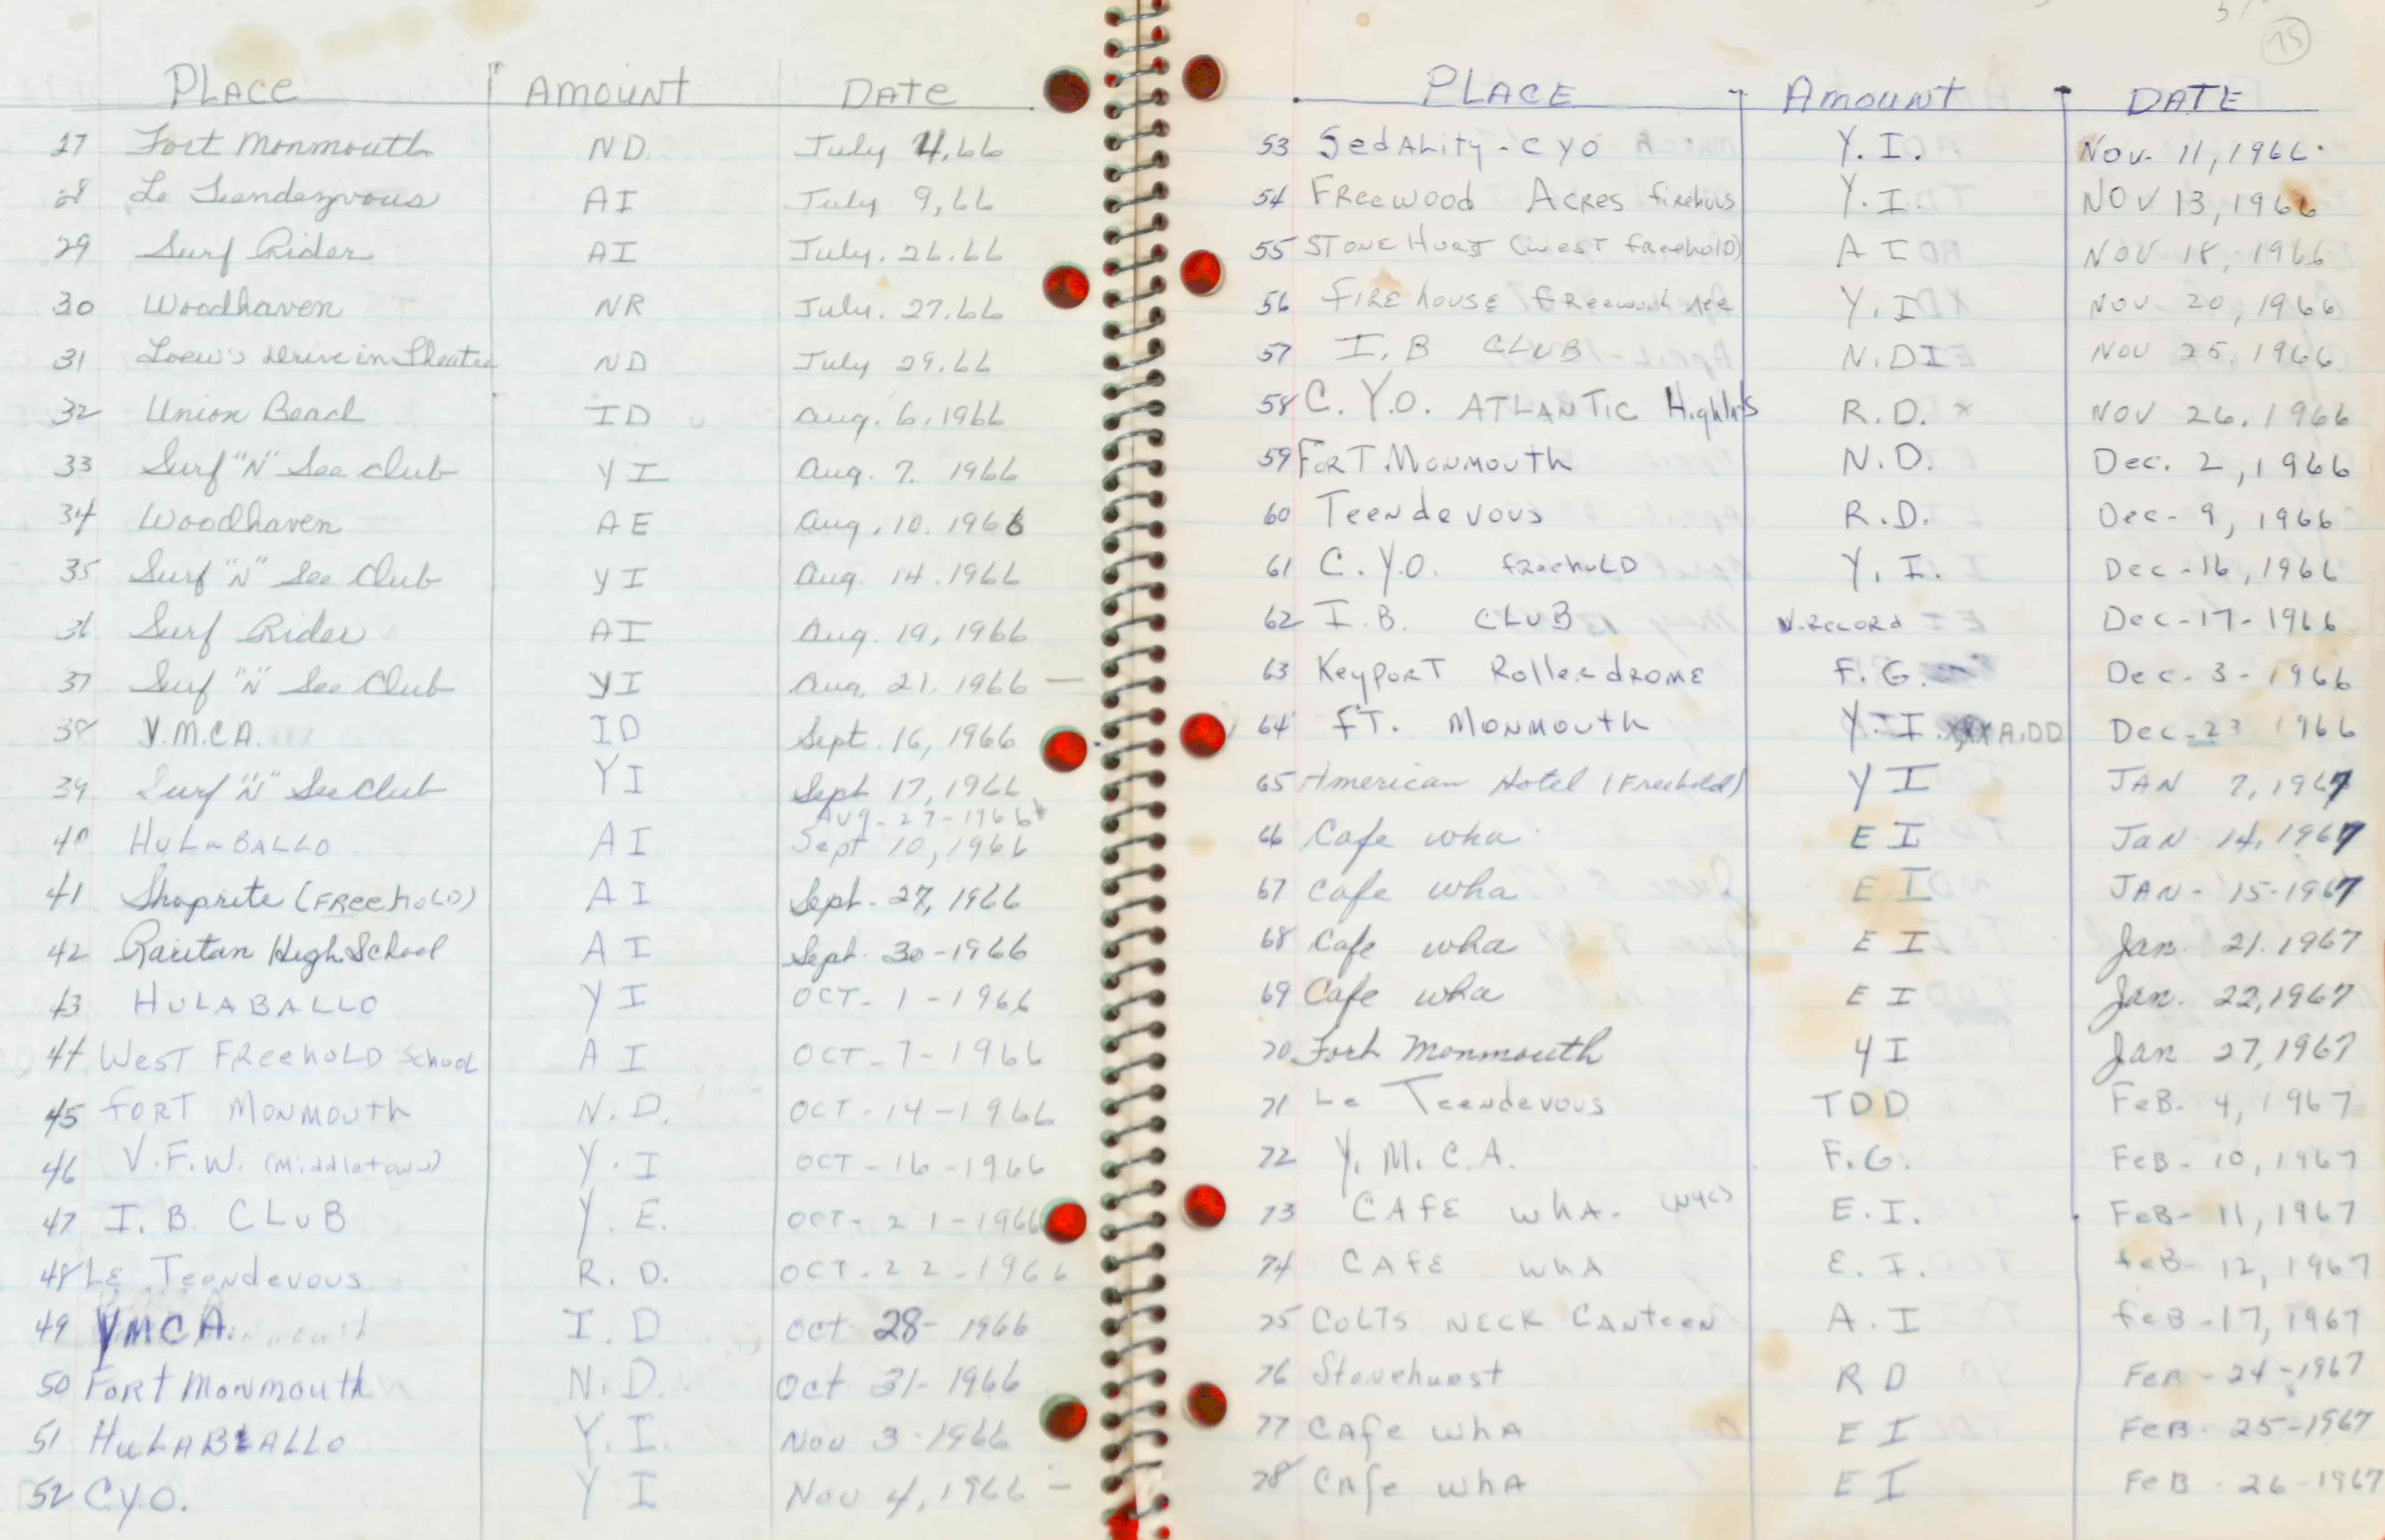 PLACE AMOUNT DATE
27 Fort Monmouth ND. July 4, 66
28 Le Teendezvous AI July 9, 66
29 Surf Rider AI July. 26. 66
30 Woodhaven NR July. 27. 66
31 Loew's Drive in Theatre ND July 29. 66
32 Union Beach ID Aug. 6, 1966
33 Surf "N" See club YI Aug. 7. 1966
34 Woodhaven AE Aug. 10. 1966
35 Surf "N" See Club YI Aug. 14. 1966
36 Surf Rider AI Aug. 19, 1966
37 Surf "N" See Club YI Aug. 21. 1966 —
38 Y.M.C.A. ID Sept. 16, 1966
39 Surf "N" See Club YI Sept 17, 1966
Aug - 27 - 1966
40 HULABALLO AI Sept 10, 1966
41 Shoprite (FREEHOLD) AI Sept. 27, 1966
42 Raritan High School AI Sept. 30 - 1966
43 HULABALLO YI OCT - 1 - 1966
44 WEST FREEHOLD School AI OCT - 7 - 1966
45 FORT MONMOUTH N.D. OCT - 14 - 1966
46 V.F.W. (Middletown) Y.I OCT - 16 - 1966
47 I.B. CLUB Y.E. OCT - 21 - 1966
48 LE Teendevous R.D. OCT - 22 - 1966
49 YMCA. I.D Oct 28 - 1966
50 Fort Monmouth N.D. Oct 31 - 1966
51 HULABALLO Y.I. Nov 3 - 1966
52 C.Y.O. YI Nov 4, 1966 —
15
PLACE AMOUNT DATE
53 SedALity - CYO Y.I. Nov. 11, 1966.
54 FReewood Acres firehous Y.I. NOV 13, 1966
55 STONE HURST (west freehold) AI NOV 18, 1966
56 FIREhouse freewood Acre Y.I NOV 20, 1966
57 I.B CLUB N.DI NOV 25. 1966
58 C.Y.O. ATLANTIC Highlnds R.D. * NOV 26. 1966
59 FORT MONMOUTH N.D. Dec. 2, 1966
60 Teendevous R.D. Dec - 9, 1966
61 C.Y.O. freehOLD Y.I. Dec - 16, 1966
62 I.B. CLUB N.RECORd Dec - 17 - 1966
63 KeypORT RollerdROME F.G. Dec - 3 - 1966
64 FT. MONMOUTH Y.I. A.DD Dec - 23 1966
65 American Hotel (Freehold) YI JAN 7, 1967
66 Cafe wha EI JAN 14, 1967
67 Cafe wha EI JAN - 15 - 1967
68 Cafe wha EI. Jan. 21. 1967
69 Cafe wha EI Jan. 22, 1967
70 Fort Monmouth YI Jan 27, 1967
71 Le Teendevous TDD FeB. 4, 1967
72 Y.M.C.A. F.G. FeB - 10, 1967
73 CAFE whA. (NYC) E.I. FeB - 11, 1967
74 CAFE whA E.I. feB - 12, 1967
75 COLTS NECK CANTEEN A.I feB - 17, 1967
76 Stonehurst RD FEB - 24 - 1967
77 CAfe whA EI FeB - 25 - 1967
78 CAfe whA EI FeB - 26 - 1967